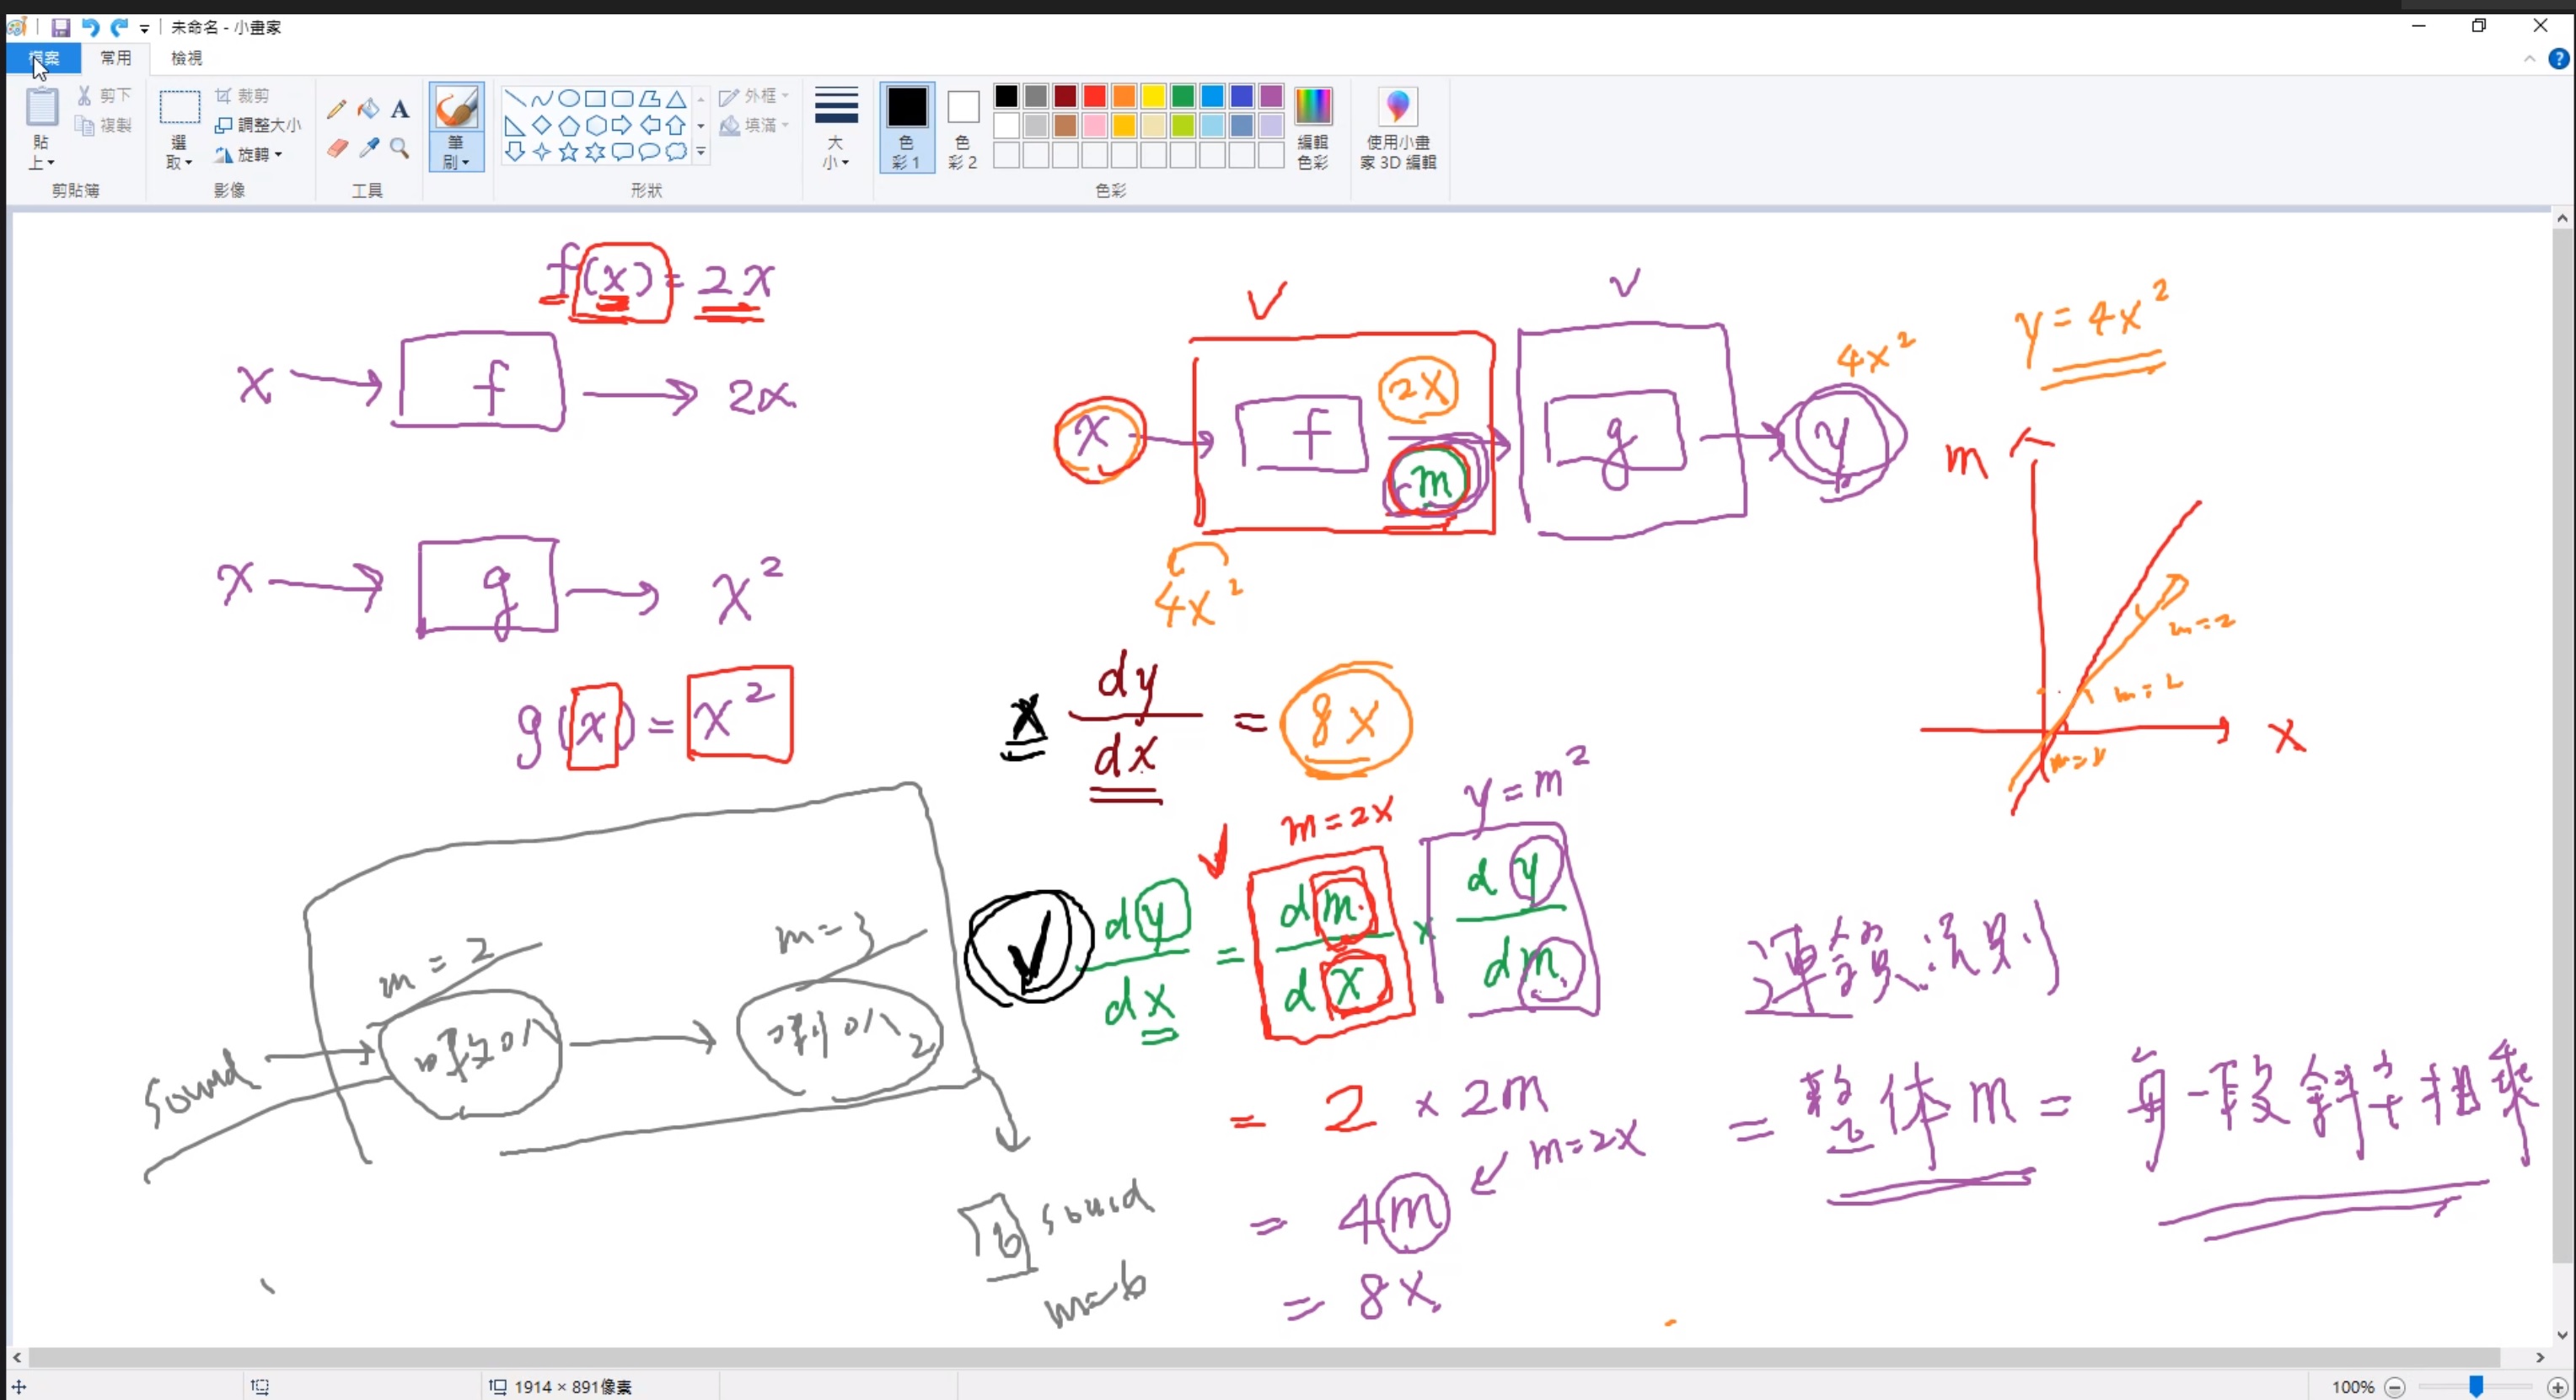 未命名 - 小畫家
檔案 常用 檢視
貼上 剪下 複製 剪貼簿
選取 裁剪 調整大小 旋轉 影像
工具
筆刷
外框 填滿 形狀
大小
色彩 1 色彩 2 編輯色彩 色彩
使用小畫家 3D 編輯
f(x) = 2x
x → f → 2x
x → g → x²
g(x) = x²
x → f 2x m → g → y 4x²
4x²
y = 4x²
m
m=2
x
x dy/dx = 8x
m=2x
y=m²
dy/dx = dm/dx × dy/dm
= 2 × 2m
m=2x
= 4m
= 8x
連鎖法則
= 整体 m = 每一段斜率相乘
m=2
m=3
sound → 喇叭 → 喇叭2
6 sound
m=6
1914 × 891像素
100%